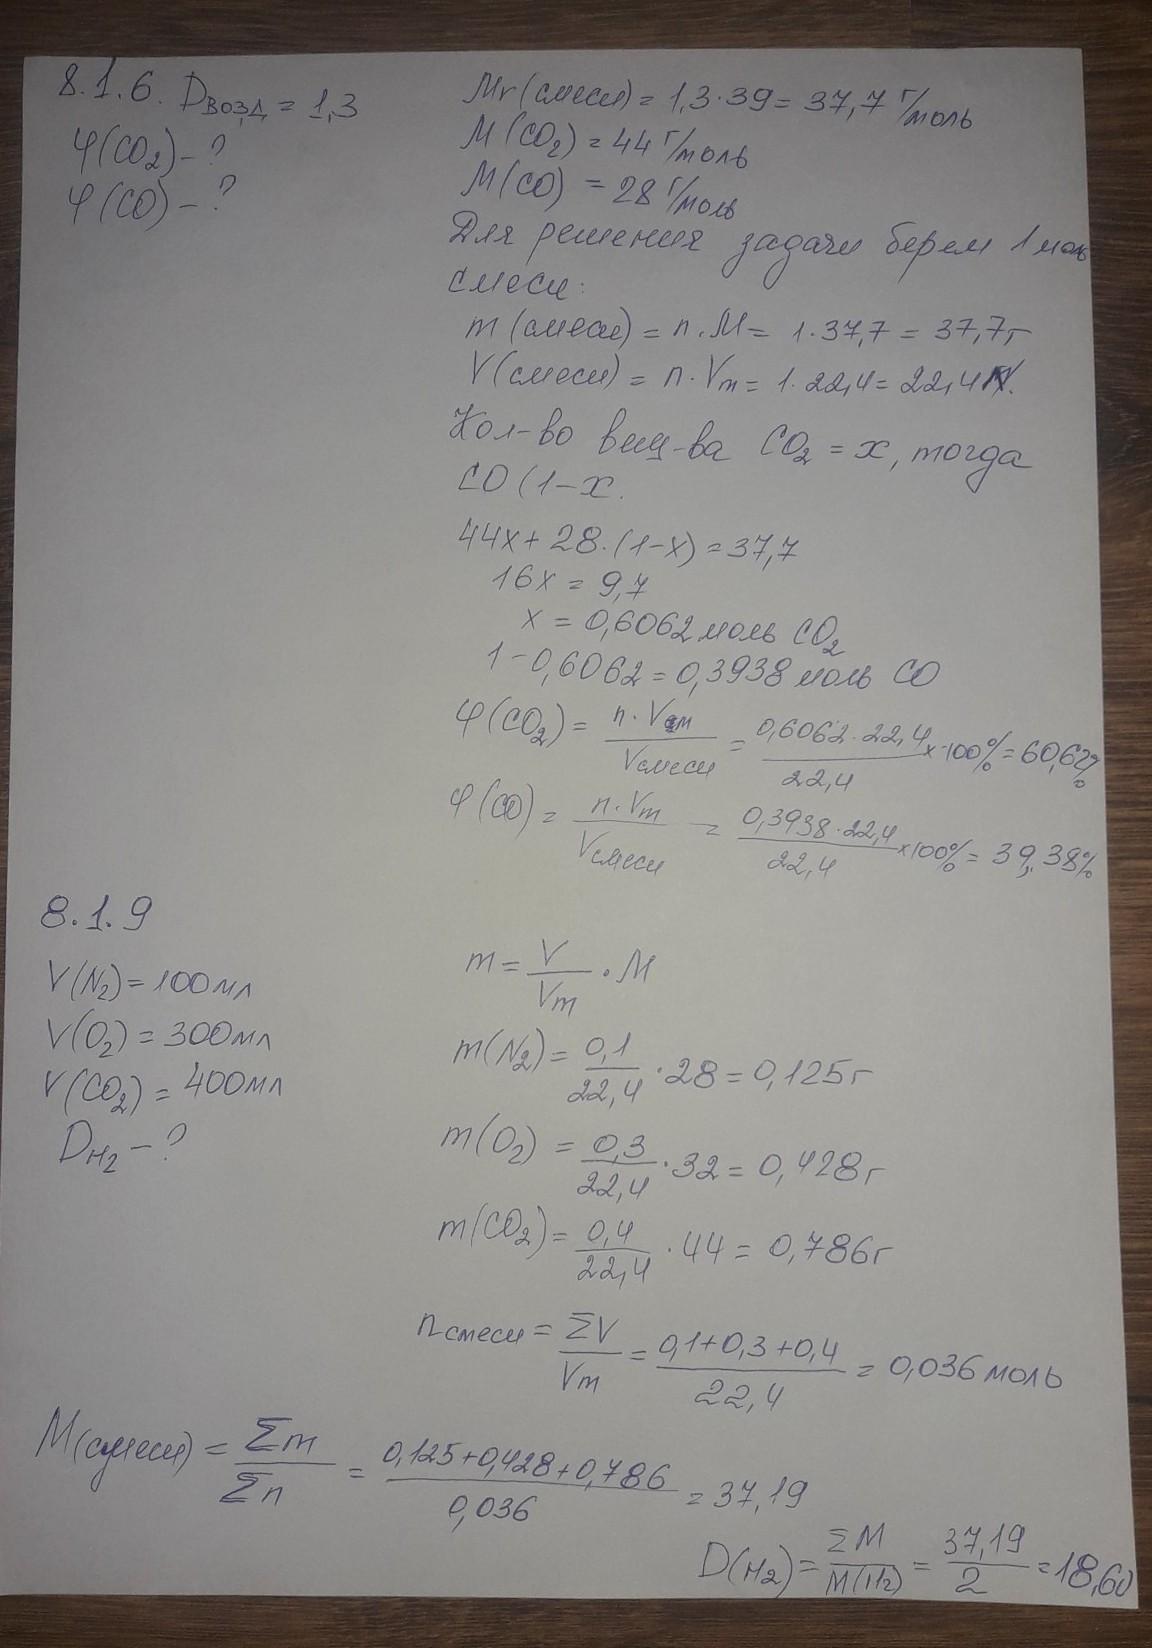 8.1.6. Dвозд = 1,3
φ(CO₂) - ?
φ(CO) - ?
Mr(смеси) = 1,3 · 39 = 37,7 г/моль
M(CO₂) = 44 г/моль
M(CO) = 28 г/моль
Для решения задачи берем 1 моль
смеси:
m(смеси) = n · M = 1 · 37,7 = 37,7г
V(смеси) = n · Vm = 1 · 22,4 = 22,4 л.
Кол-во вещ-ва CO₂ = x, тогда
CO (1-x.
44x + 28 · (1-x) = 37,7
16x = 9,7
x = 0,6062 моль CO₂
1 - 0,6062 = 0,3938 моль CO
φ(CO₂) = n · Vm / Vсмеси = 0,6062 · 22,4 / 22,4 x 100% = 60,62%
φ(CO) = n · Vm / Vсмеси = 0,3938 · 22,4 / 22,4 x 100% = 39,38%
8.1.9
V(N₂) = 100мл
V(O₂) = 300мл
V(CO₂) = 400мл
DH₂ - ?
m = V / Vm · M
m(N₂) = 0,1 / 22,4 · 28 = 0,125г
m(O₂) = 0,3 / 22,4 · 32 = 0,428г
m(CO₂) = 0,4 / 22,4 · 44 = 0,786г
nсмеси = ΣV / Vm = 0,1+0,3+0,4 / 22,4 = 0,036 моль
M(смеси) = Σm / Σn = 0,125+0,428+0,786 / 0,036 = 37,19
D(H₂) = ΣM / M(H₂) = 37,19 / 2 = 18,60